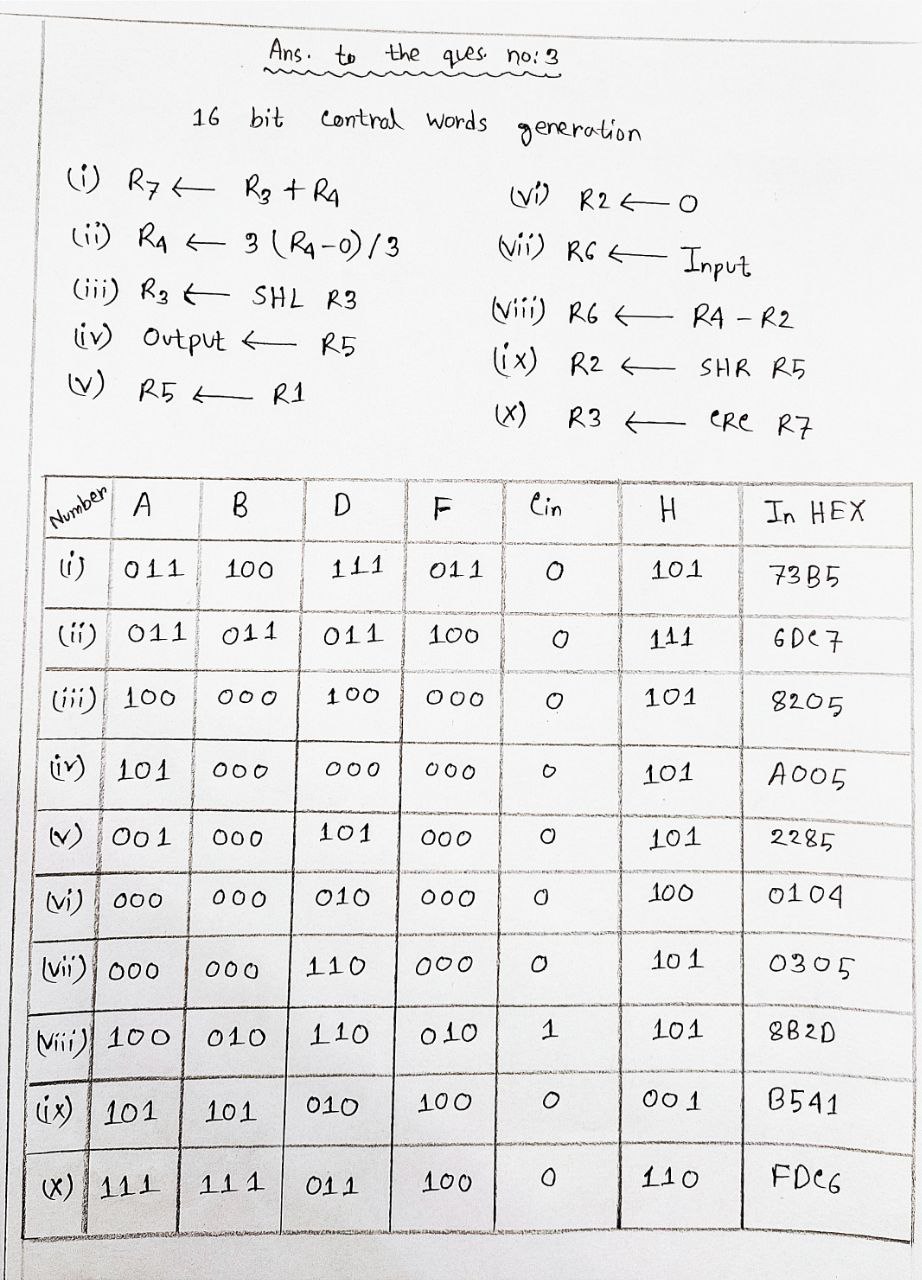 Ans. to the ques. no: 3
16 bit control words generation
(i) R7 ← R3 + R4
(ii) R4 ← 3 (R4-0)/3
(iii) R3 ← SHL R3
(iv) Output ← R5
(v) R5 ← R1
(vi) R2 ← 0
(vii) R6 ← Input
(viii) R6 ← R4 - R2
(ix) R2 ← SHR R5
(x) R3 ← CRC R7
Number A B D F Cin H In HEX
(i) 011 100 111 011 0 101 73B5
(ii) 011 011 011 100 0 111 6DC7
(iii) 100 000 100 000 0 101 8205
(iv) 101 000 000 000 0 101 A005
(v) 001 000 101 000 0 101 2285
(vi) 000 000 010 000 0 100 0104
(vii) 000 000 110 000 0 101 0305
(viii) 100 010 110 010 1 101 8B2D
(ix) 101 101 010 100 0 001 B541
(x) 111 111 011 100 0 110 FDC6